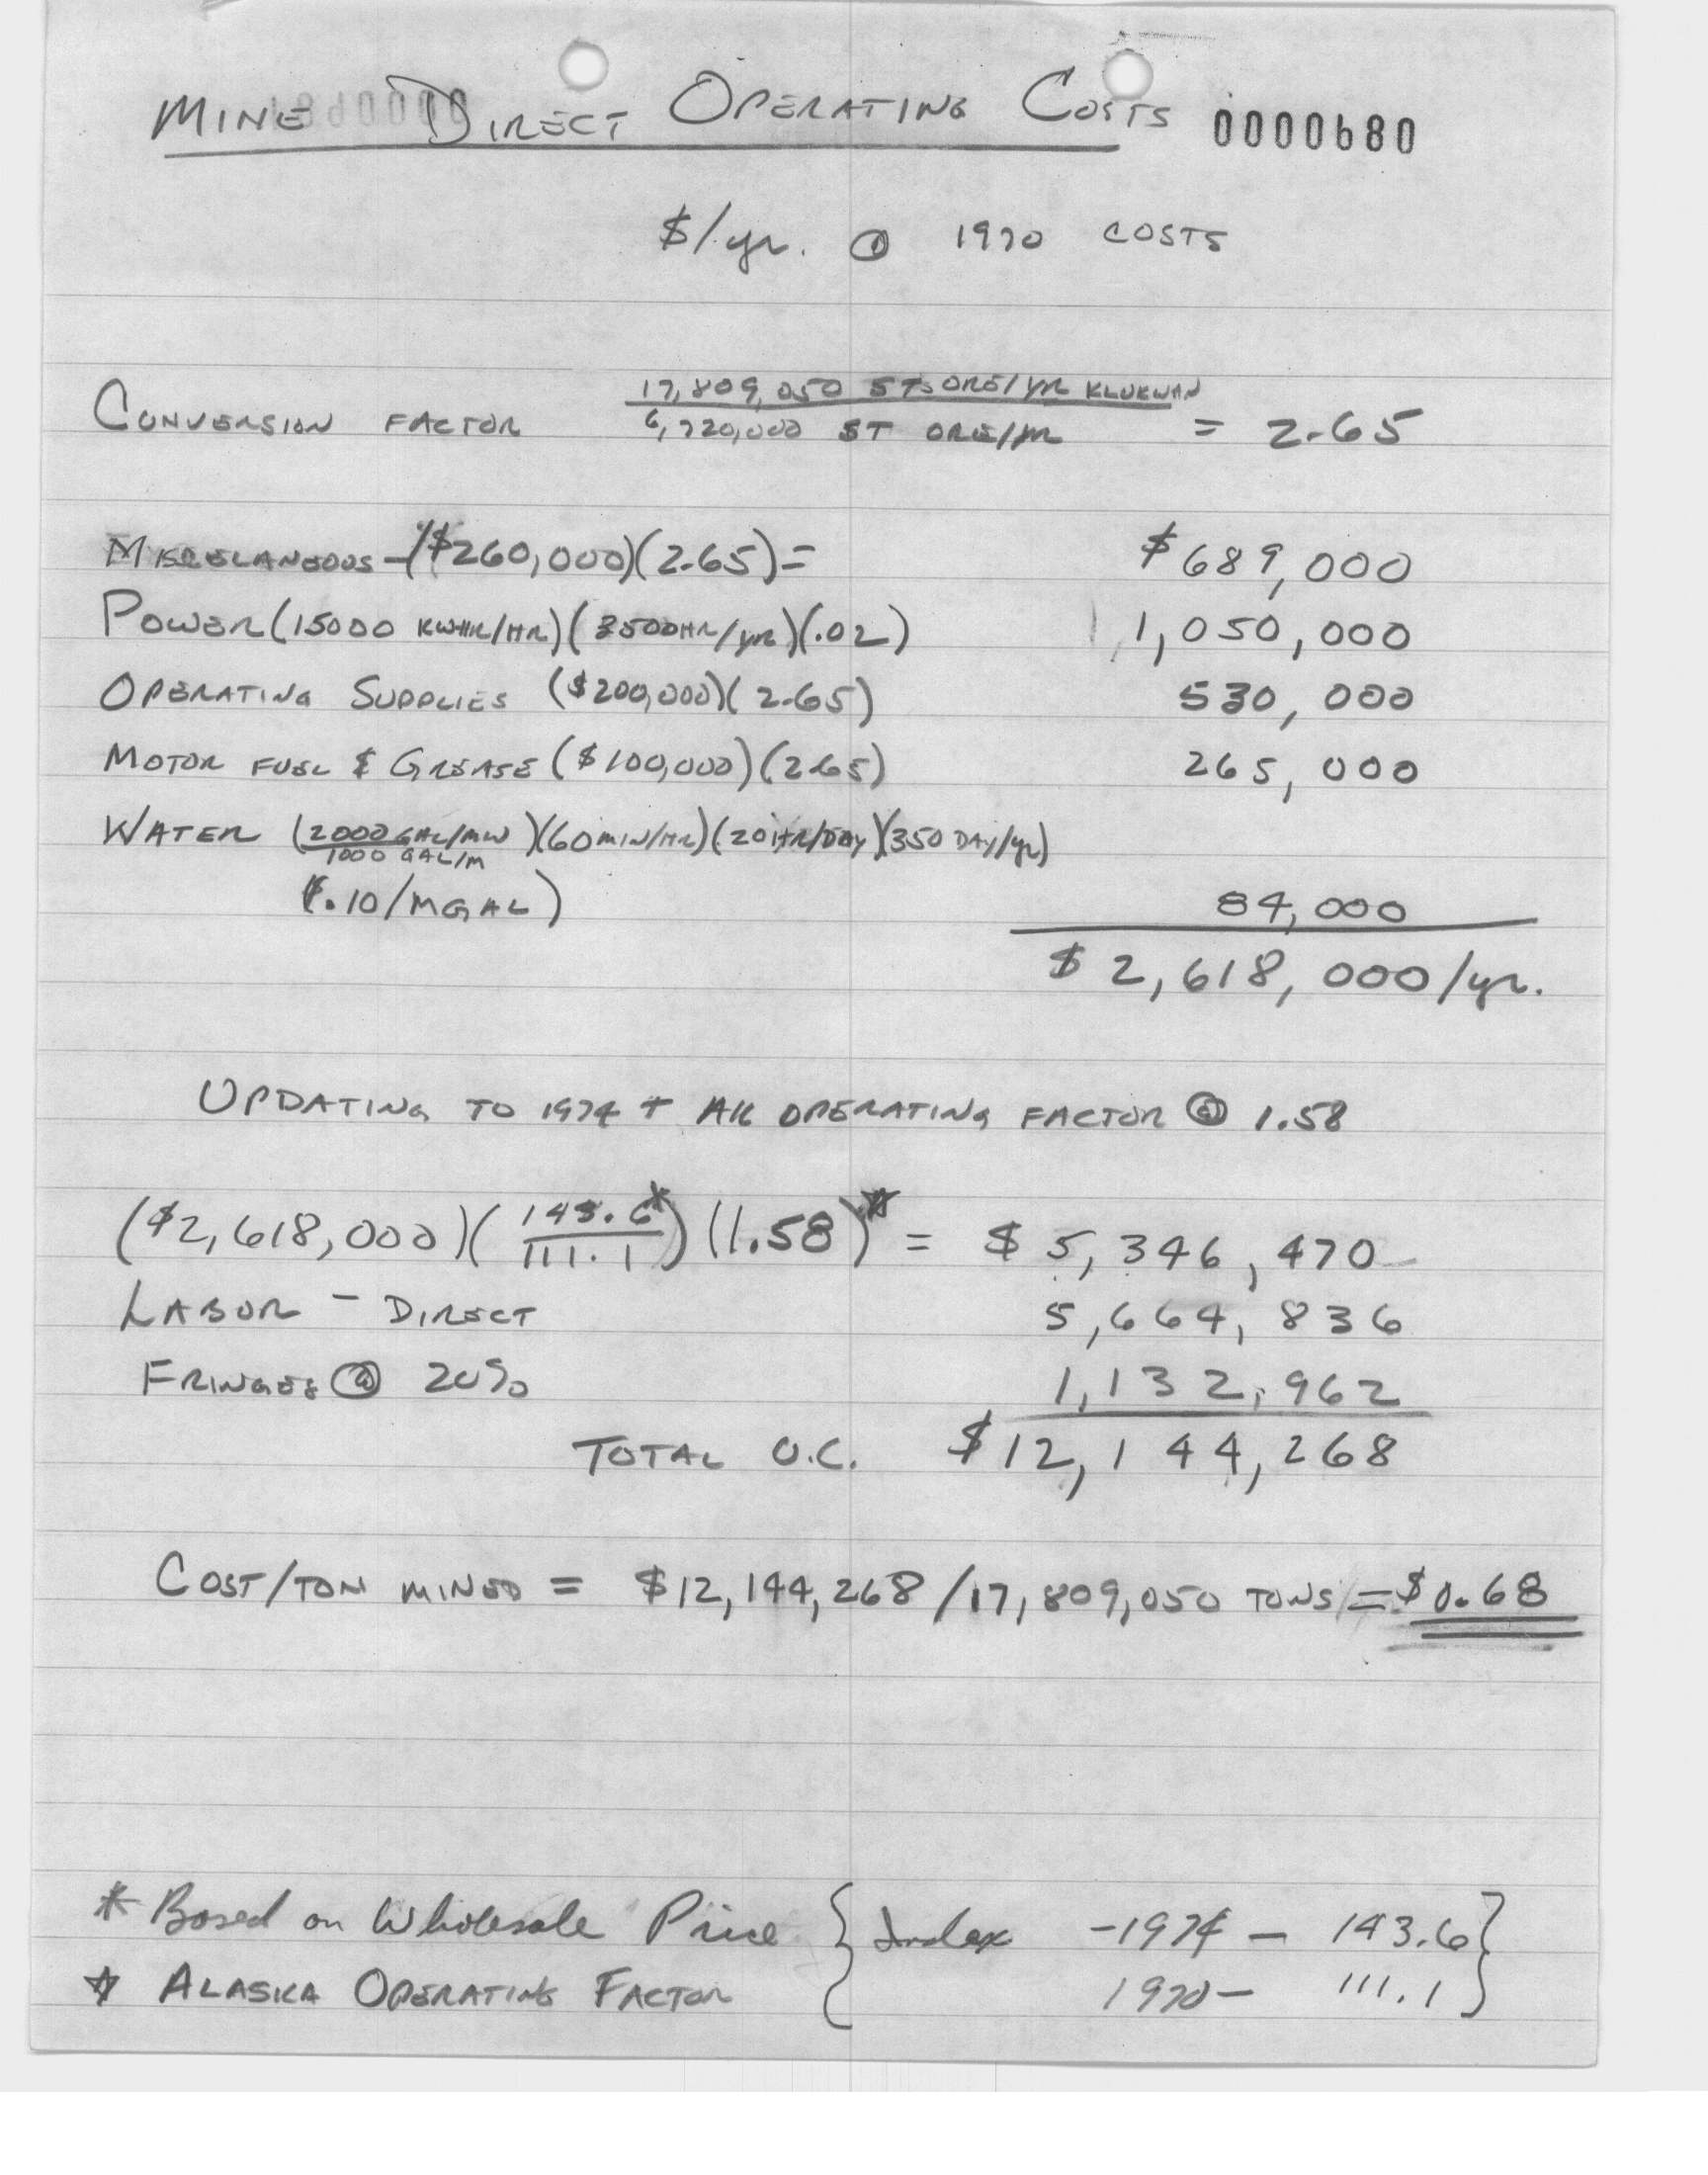 MINE DIRECT OPERATING COSTS 0000680
$/yr. @ 1970 COSTS
17,809,050 STS ORE/YR KLUKWAN
CONVERSION FACTOR = 2.65
6,720,000 ST ORE/YR
MISCELANEOUS - ($260,000)(2.65) = $689,000
POWER (15000 KWHR/HR)(3500HR/YR)(.02) 1,050,000
OPERATING SUPPLIES ($200,000)(2.65) 530,000
MOTOR FUEL & GREASE ($100,000)(2.65) 265,000
WATER (2000 GAL/MIN / 1000 GAL/M)(60 MIN/HR)(20 HR/DAY)(350 DAY/yr)
($.10/MGAL) 84,000
$2,618,000/yr.
UPDATING TO 1974 + AK OPERATING FACTOR @ 1.58
($2,618,000)(143.6*/111.1)(1.58)☆ = $5,346,470
LABOR - DIRECT 5,664,836
FRINGES @ 20% 1,132,962
TOTAL O.C. $12,144,268
COST/TON MINED = $12,144,268/17,809,050 TONS = $0.68
* Based on Wholesale Price { Index -1974 - 143.6 }
☆ ALASKA OPERATING FACTOR { 1970 - 111.1 }